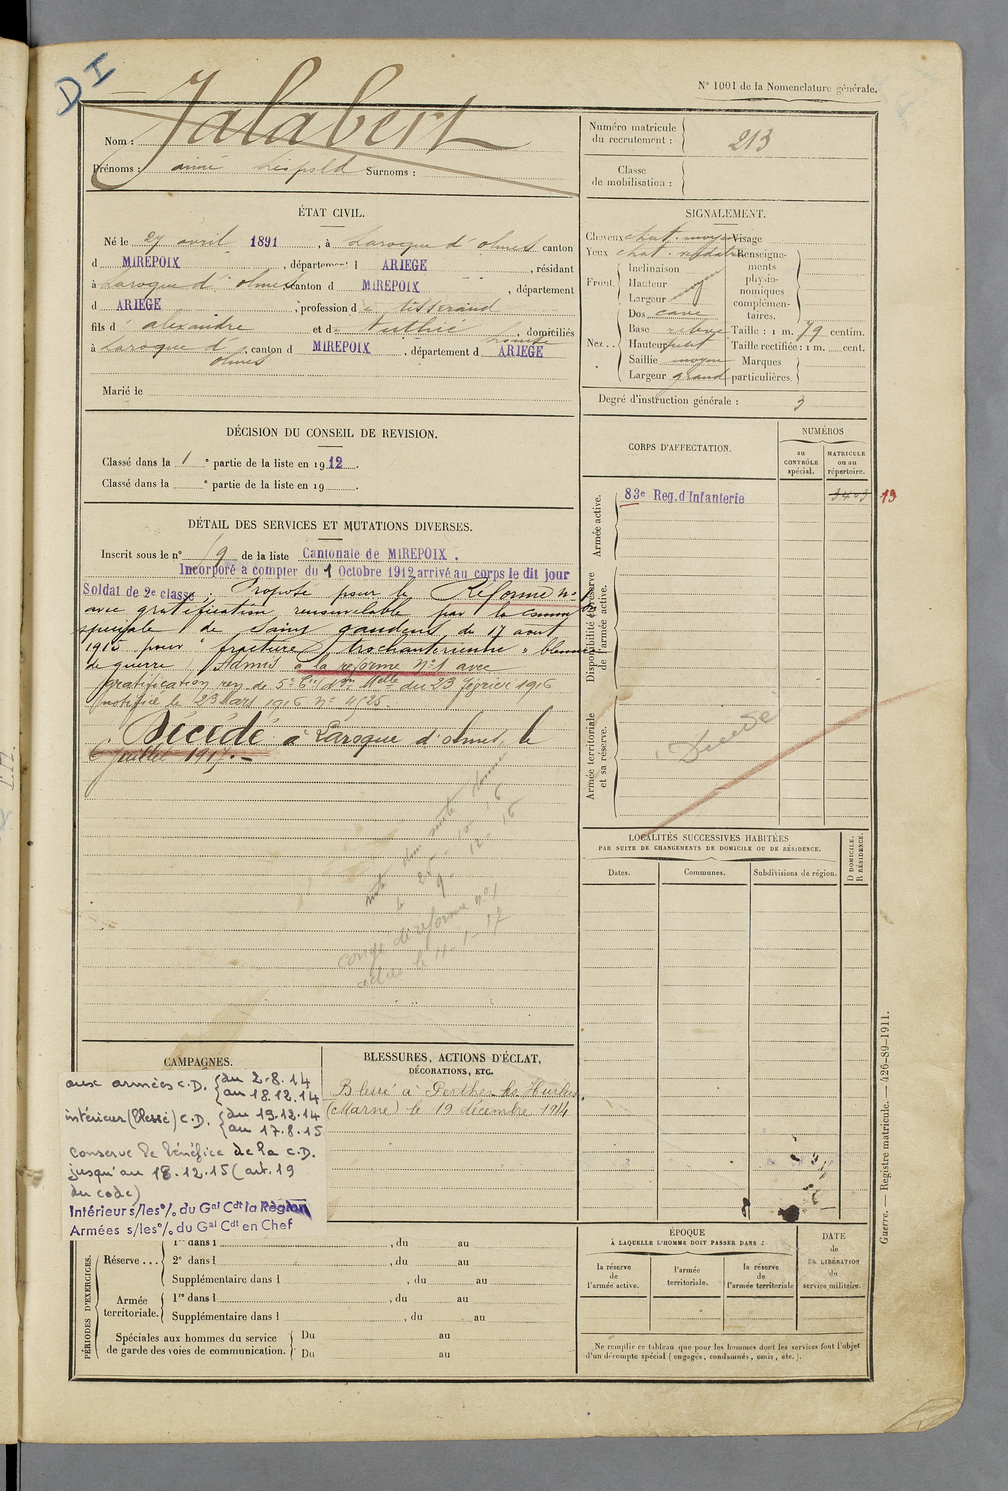 DI
N° 1001 de la Nomenclature générale.
Nom : Jalabert
Prénoms : aimé Léopold Surnoms :
ÉTAT CIVIL.
Né le 27 avril 1891, à Laroque d'olmes canton
d MIREPOIX, département d ARIEGE, résidant
à Laroque d'olmes canton d MIREPOIX, département
d ARIEGE, profession de tisserand
fils d' alexandre et de Authié, domiciliés
à Laroque d'olmes, canton d MIREPOIX, département d ARIEGE
Marié le
DÉCISION DU CONSEIL DE REVISION.
Classé dans la 1e partie de la liste en 1912.
Classé dans la e partie de la liste en 19
DÉTAIL DES SERVICES ET MUTATIONS DIVERSES.
Inscrit sous le n° 19 de la liste Cantonale de MIREPOIX.
Incorporé a compter du 1 Octobre 1912 arrivé au corps le dit jour
Soldat de 2e classe. Proposé pour la Réforme n° 1
avec gratification renouvelable par la comm
spéciale de Saint gaudens, du 17 aout
1915 pour " fracture trochanterienne " blessure
de guerre. Admis à la reforme N°1 avec
gratification ren. de 5e Cie du 23 février 1916
notifiée le 23 Mars 1916 N° 4525.
Décédé à Laroque d'olmes, le
6 juillet 1917.
25-10-16
9-12-16
congé de reforme n° 1
le 11-1-17
CAMPAGNES.
aux armées C.D. { du 2.8.14
au 18.12.14
intérieur (blessé) C.D. { du 19.12.14
au 17.8.15
Conserve le bénéfice de la C.D.
jusqu'au 18.12.15 (art. 19
du code)
Intérieur s/les o/o du Gal Cdt la Région
Armées s/les o/o du Gal Cdt en Chef
BLESSURES, ACTIONS D'ÉCLAT,
DÉCORATIONS, ETC.
Blessé à Perthes les Hurlus
(Marne) le 19 décembre 1914
PÉRIODES D'EXERCICES.
Réserve ... 1re dans l , du au
2e dans l , du au
Supplémentaire dans l , du au
Armée territoriale. 1re dans l , du au
Supplémentaire dans l , du au
Spéciales aux hommes du service
de garde des voies de communication. Du au
Du au
Numéro matricule
du recrutement : 213
Classe
de mobilisation :
SIGNALEMENT.
Cheveux chat. moyen Visage
Yeux chat. verdatre
Renseignements physionomiques complémentaires.
Front. Inclinaison
Hauteur
Largeur moyen
Nez .. Dos cave
Base relevé Taille : 1 m. 79 centim.
Hauteur petit Taille rectifiée : 1 m. cent.
Saillie moyen Marques
Largeur grand particulières.
Degré d'instruction générale : 3
CORPS D'AFFECTATION.
NUMÉROS
au CONTRÔLE spécial.
MATRICULE ou au répertoire.
Armée active.
83e Reg. d'Infanterie 3403 13
Disponibilité et réserve de l'armée active.
Armée territoriale et sa réserve.
Décédé
LOCALITÉS SUCCESSIVES HABITÉES
PAR SUITE DE CHANGEMENTS DE DOMICILE OU DE RÉSIDENCE.
Dates.
Communes.
Subdivisions de région.
D DOMICILE.
R RÉSIDENCE.
ÉPOQUE
À LAQUELLE L'HOMME DOIT PASSER DANS :
la réserve de l'armée active.
l'armée territoriale.
la réserve de l'armée territoriale
DATE de LA LIBÉRATION du service militaire.
Ne remplir ce tableau que pour les hommes dont les services font l'objet
d'un décompte spécial (engagés, condamnés, omis, etc.).
Guerre. — Registre matricule. — 426-89-1911.